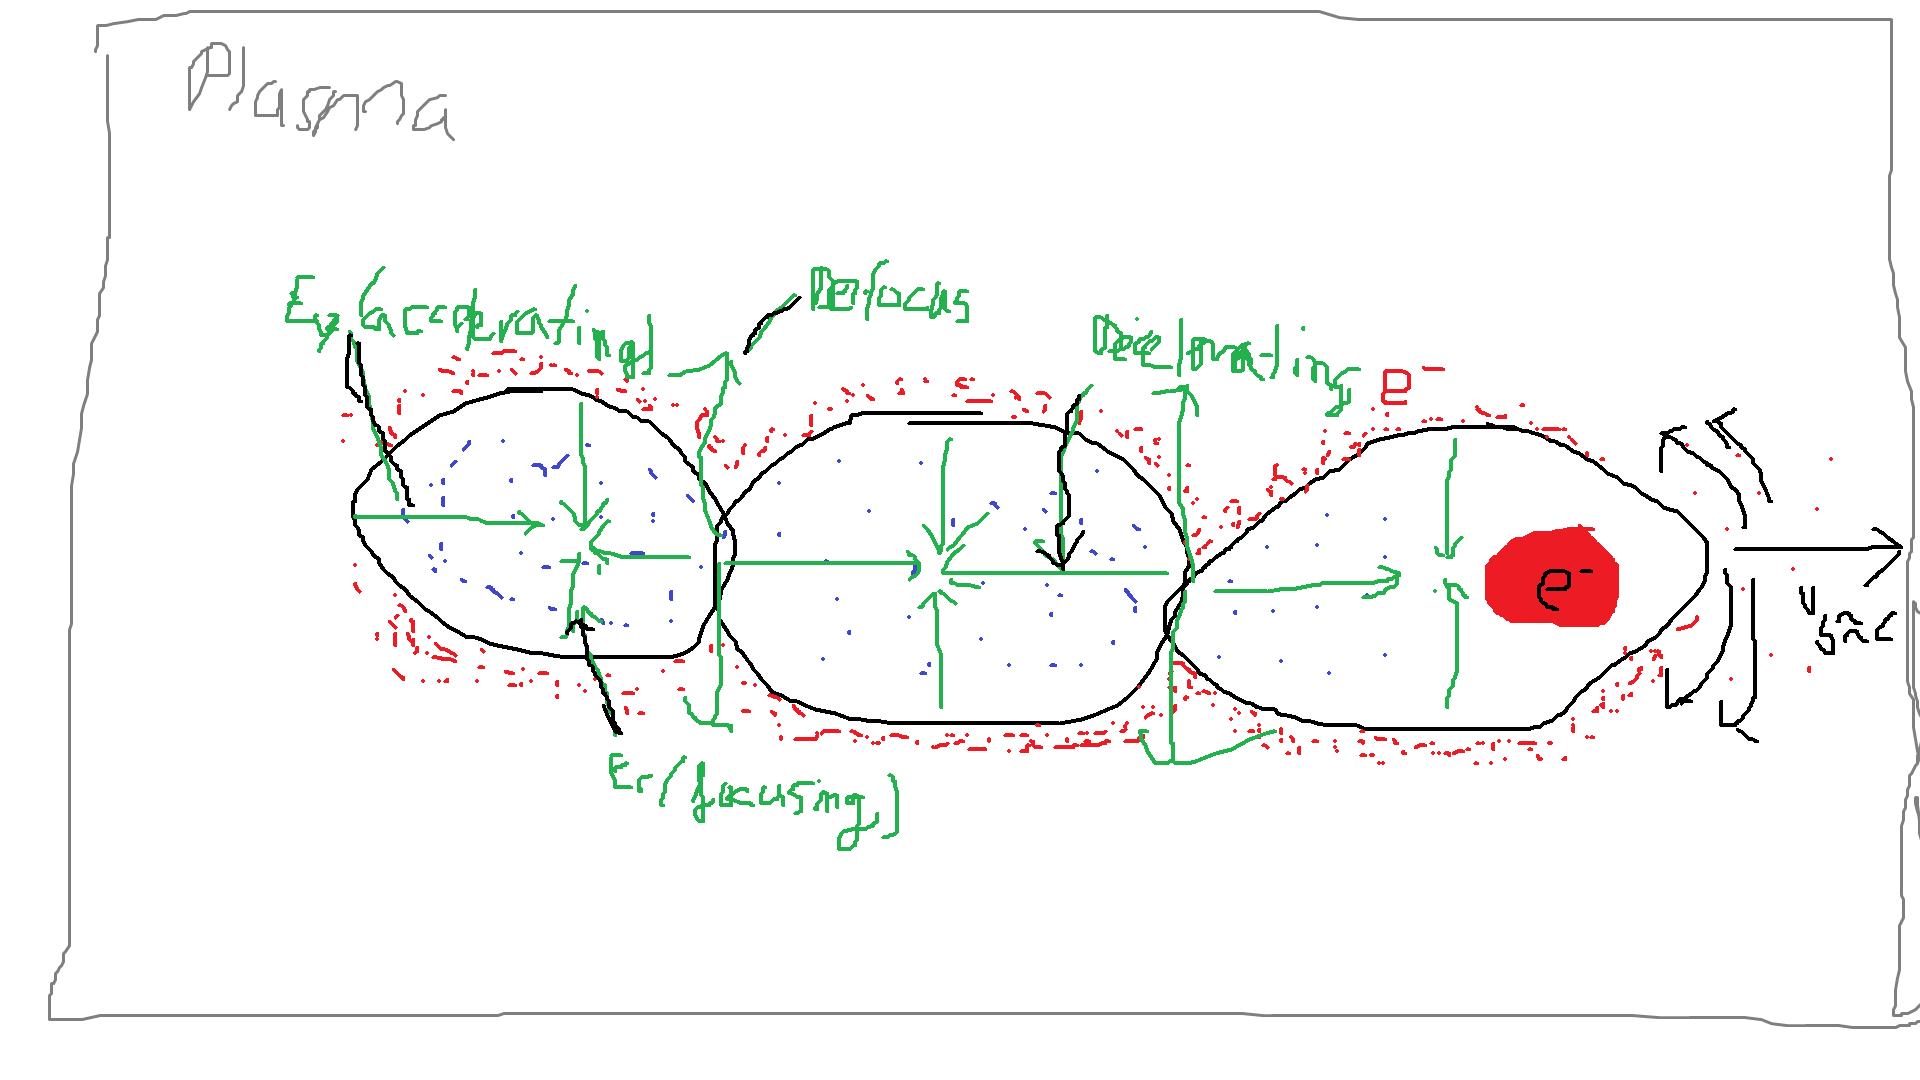 Plasma
Ez (accelerating)
Defocus
Decelerating
e-
e-
v_b≈c
Er (focusing)